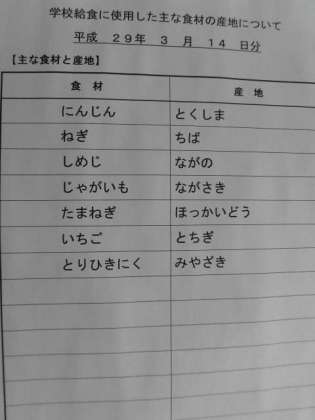 学校給食に使用した主な食材の産地について
平成　２９年　３　月　１４　日分
【主な食材と産地】
食　材　産　地
にんじん　とくしま
ねぎ　ちば
しめじ　ながの
じゃがいも　ながさき
たまねぎ　ほっかいどう
いちご　とちぎ
とりひきにく　みやざき